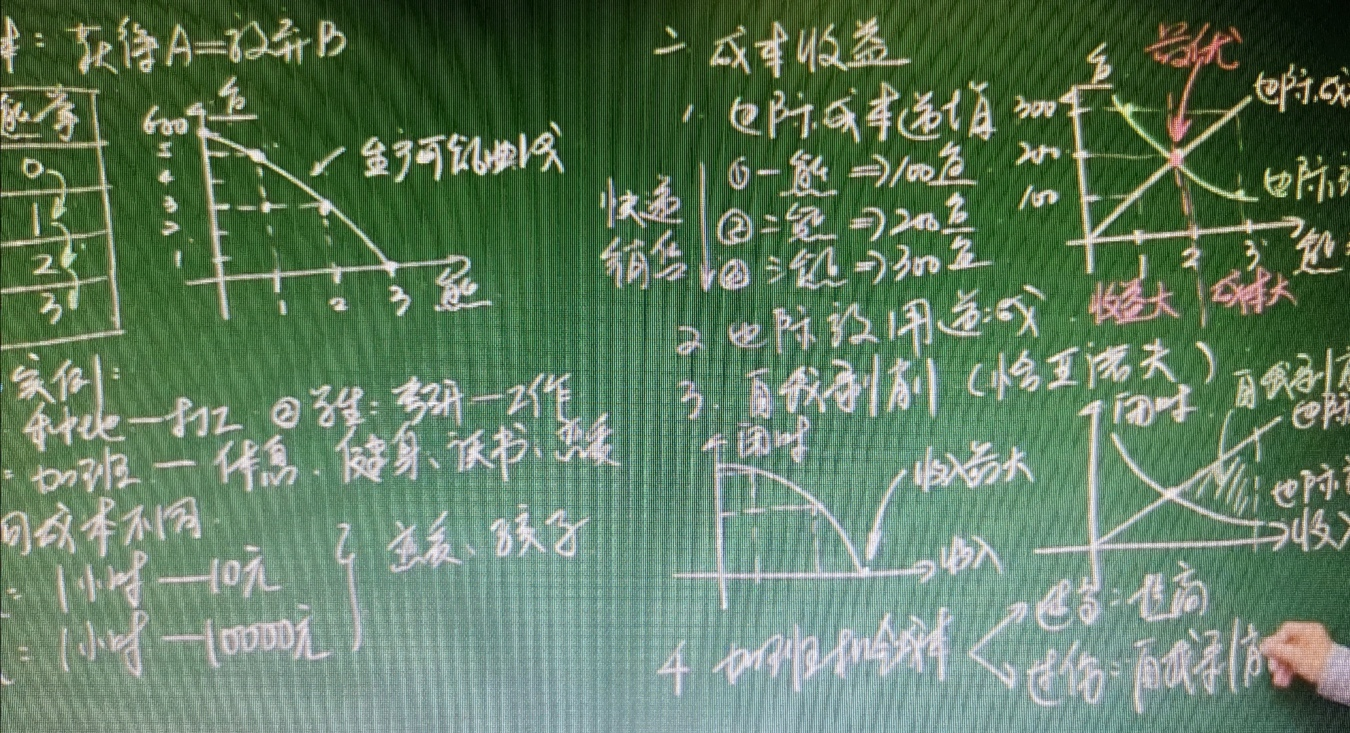 本：获得A=放弃B
熊掌
0
1
2
3
鱼
600
5
4
3
2
1
1 2 3 熊
生产可能曲线
实例：
种地—打工 ②学生：考研—工作
：加班—休息、健身、读书、恋爱
间成本不同
：1小时—10元
：1小时—10000元
恋爱、孩子
二 成本收益
1 边际成本递增
快递
销售
①一熊⇒100鱼
②二熊⇒200鱼
③三熊⇒300鱼
2 边际效用递减
3. 自我剥削（恰亚诺夫）
闲时
收入最大
收入
4 加班机会成本
适当：提高
过份：自我剥削
鱼
300
200
100
最优
边际成
边际
1 2 3 熊
收益大 成本大
闲时
自我剥削
边际
边际
收入